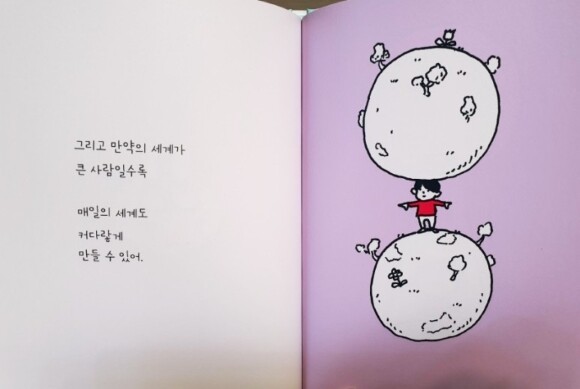 그리고 만약의 세계가
큰 사람일수록
매일의 세계도
커다랗게
만들 수 있어.